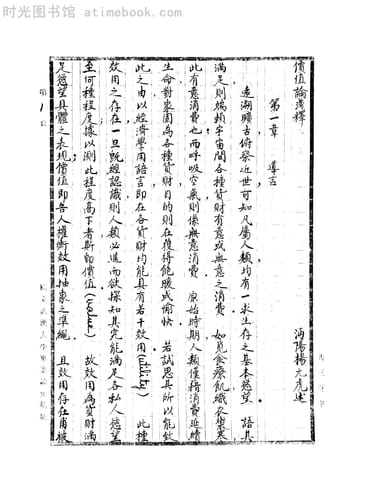 时光图书馆 - atimebook.com
價值論淺釋
第一章 導言
沔陽楊元虎述
遠溯曠古俯察近世可知凡屬人類均有一求生存之基本慾望 語其
滿足則端賴宇宙間各種貨財有意或無意之消費 如覓食療飢織衣禦寒
此有意消費也而呼吸空氣則係無意消費 原始時期人類僅藉消費延續
生命對象固為各種貨財目的則在獲得飽暖或愉快 若試思其所以能致
此之由以經濟學用語言即在各貨財均能具有若干效用(utility) 此種
效用之存在一旦既經認識則人類必進而欲探知其究能滿足各私人慾望
至何種程度據以測此程度高下者斯即價值(value) 故效用為貨財滿
足慾望具體之表現價值即吾人權衡效用抽象之準繩 且效用存在甫被
第1頁